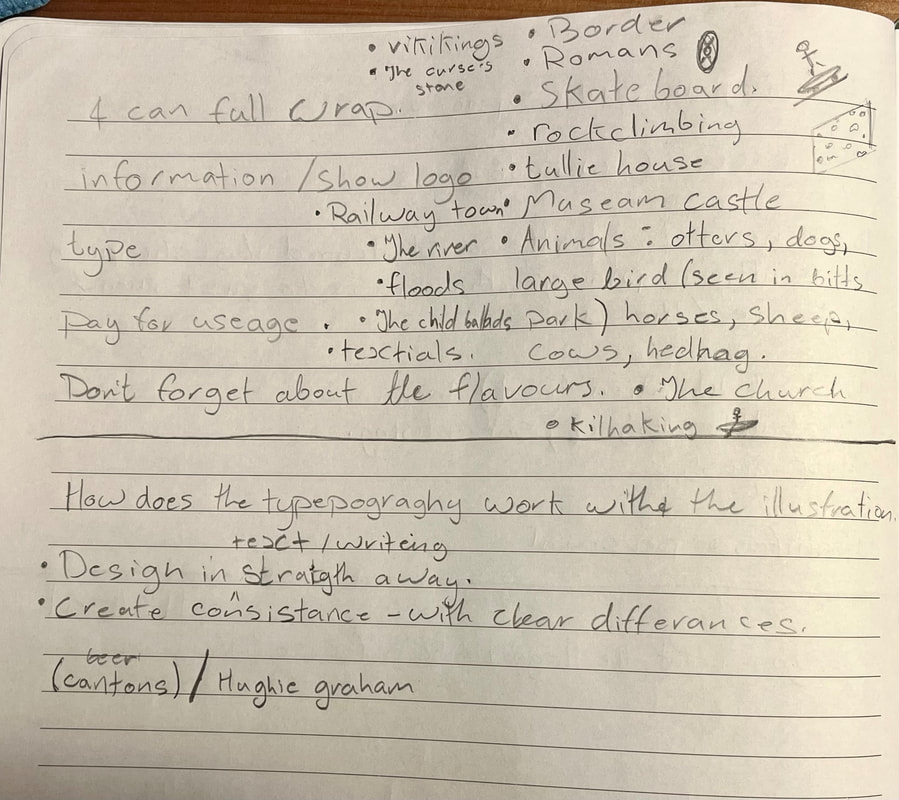 • vikikings • Border
• The curse's • Romans
stone
4 can full wrap. • Skate board.
• rockclimbing
information / show logo • tullie house
• Railway town • Museam castle
type • The river • Animals : otters, dogs,
• floods large bird (seen in bitts
pay for useage . • The child ballads park) horses, sheep,
• textials. cows, hedhag.
Don't forget about the flavours. • The church
• kilhaking
How does the typepograghy work withe the illustration.
text / writeing
• Design in stratgth away.
• Create consistance - with clear differances.
beer
(cantons) / Hughie graham